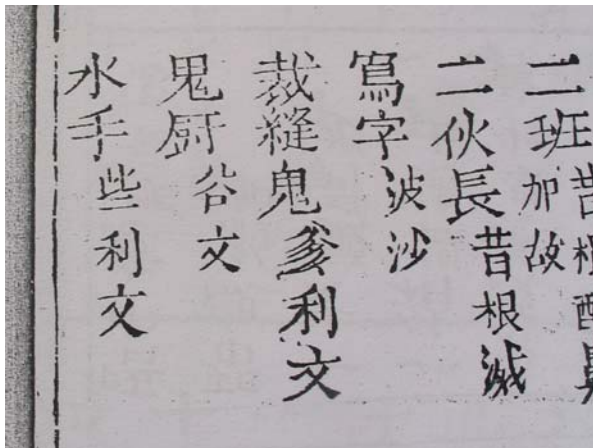 二班昔根
加故
二伙長昔根滅
寫字波沙
裁縫鬼爹利文
鬼厨谷文
水手些利文